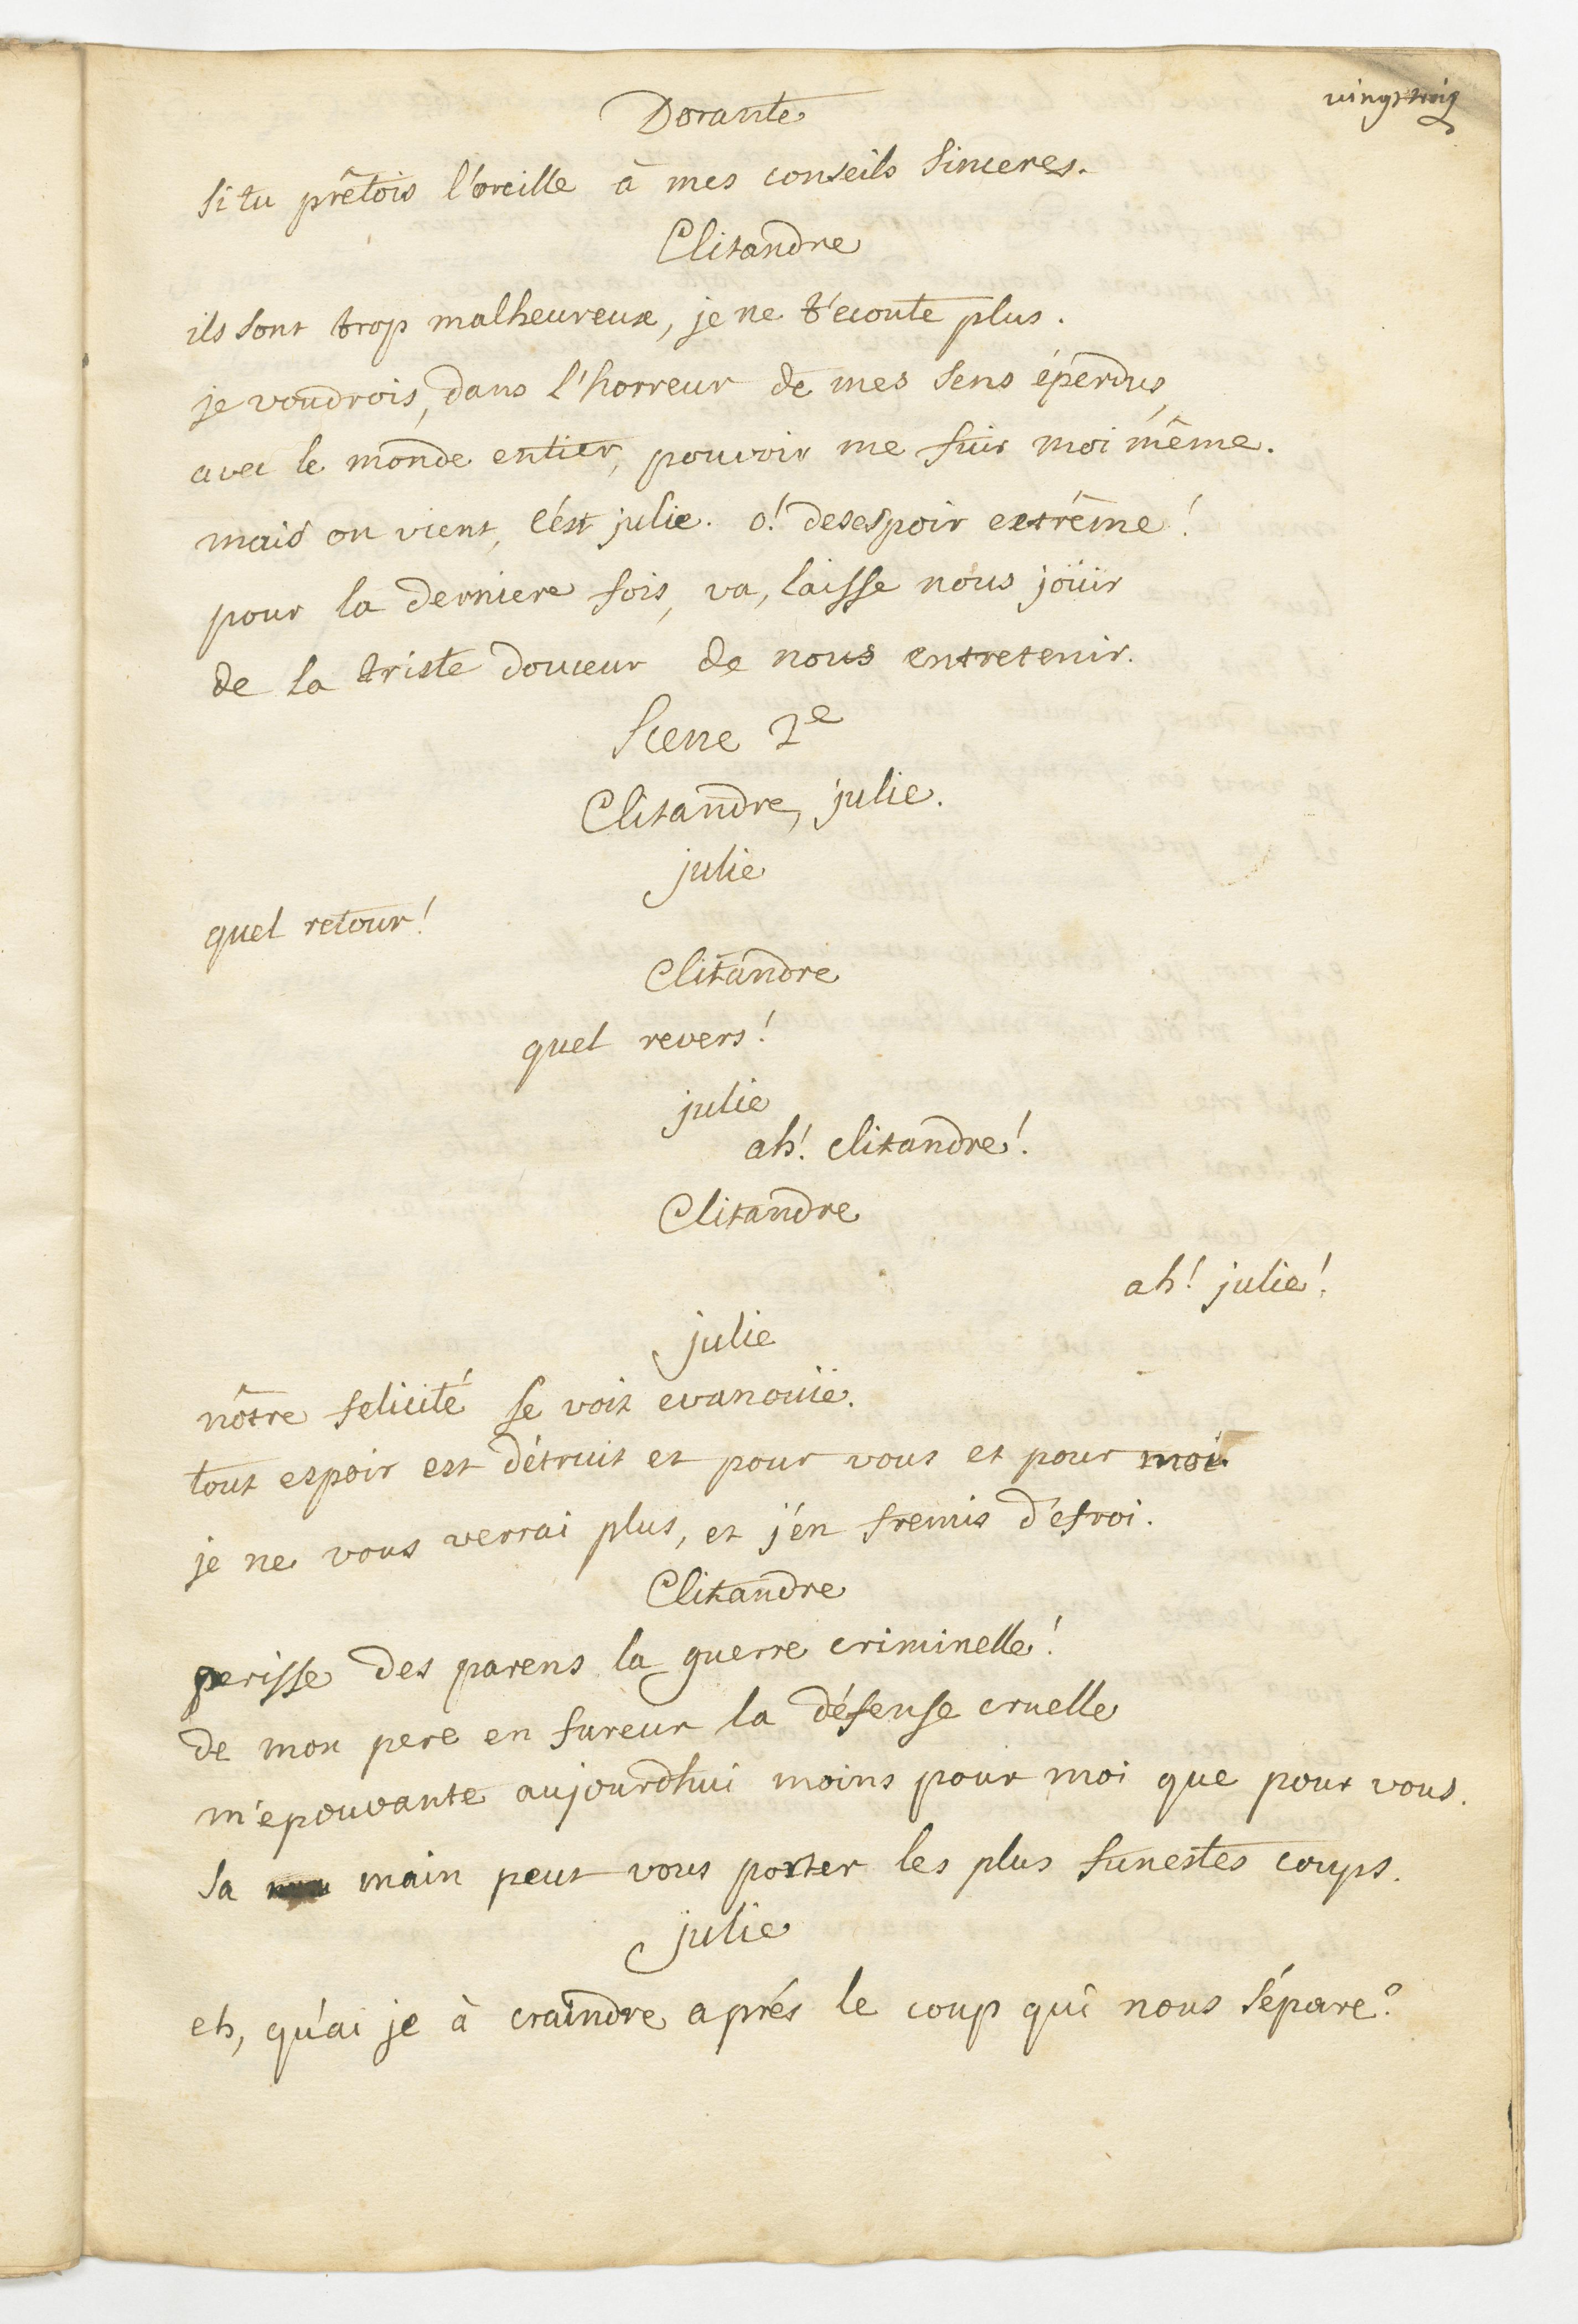 vingt trois
Dorante
si tu prêtois l'oreille à mes conseils sinceres.
Clitandre
ils sont trop malheureux, je ne t'ecoute plus.
je voudrois, dans l'horreur de mes sens éperdus,
avec le monde entier, pouvoir me fuir moi même.
mais on vient, c'est julie. o! desespoir extrême!
pour la derniere fois, va, laisse nous joüir
de la triste douceur de nous entretenir.
Scene 2e
Clitandre, julie.
julie
quel retour!
Clitandre
quel revers!
julie
ah! clitandre!
Clitandre
ah! julie!
julie
nôtre felicité se voit evanouïe.
tout espoir est détruit et pour vous et pour moi.
je ne vous verrai plus, et j'en fremis d'efroi.
Clitandre
perisse des parens la guerre criminelle!
de mon pere en fureur la défense cruelle
m'epouvante aujourdhui moins pour moi que pour vous.
sa main peut vous porter les plus funestes coups.
julie
eh, qu'ai je à craindre aprés le coup qui nous sépare?